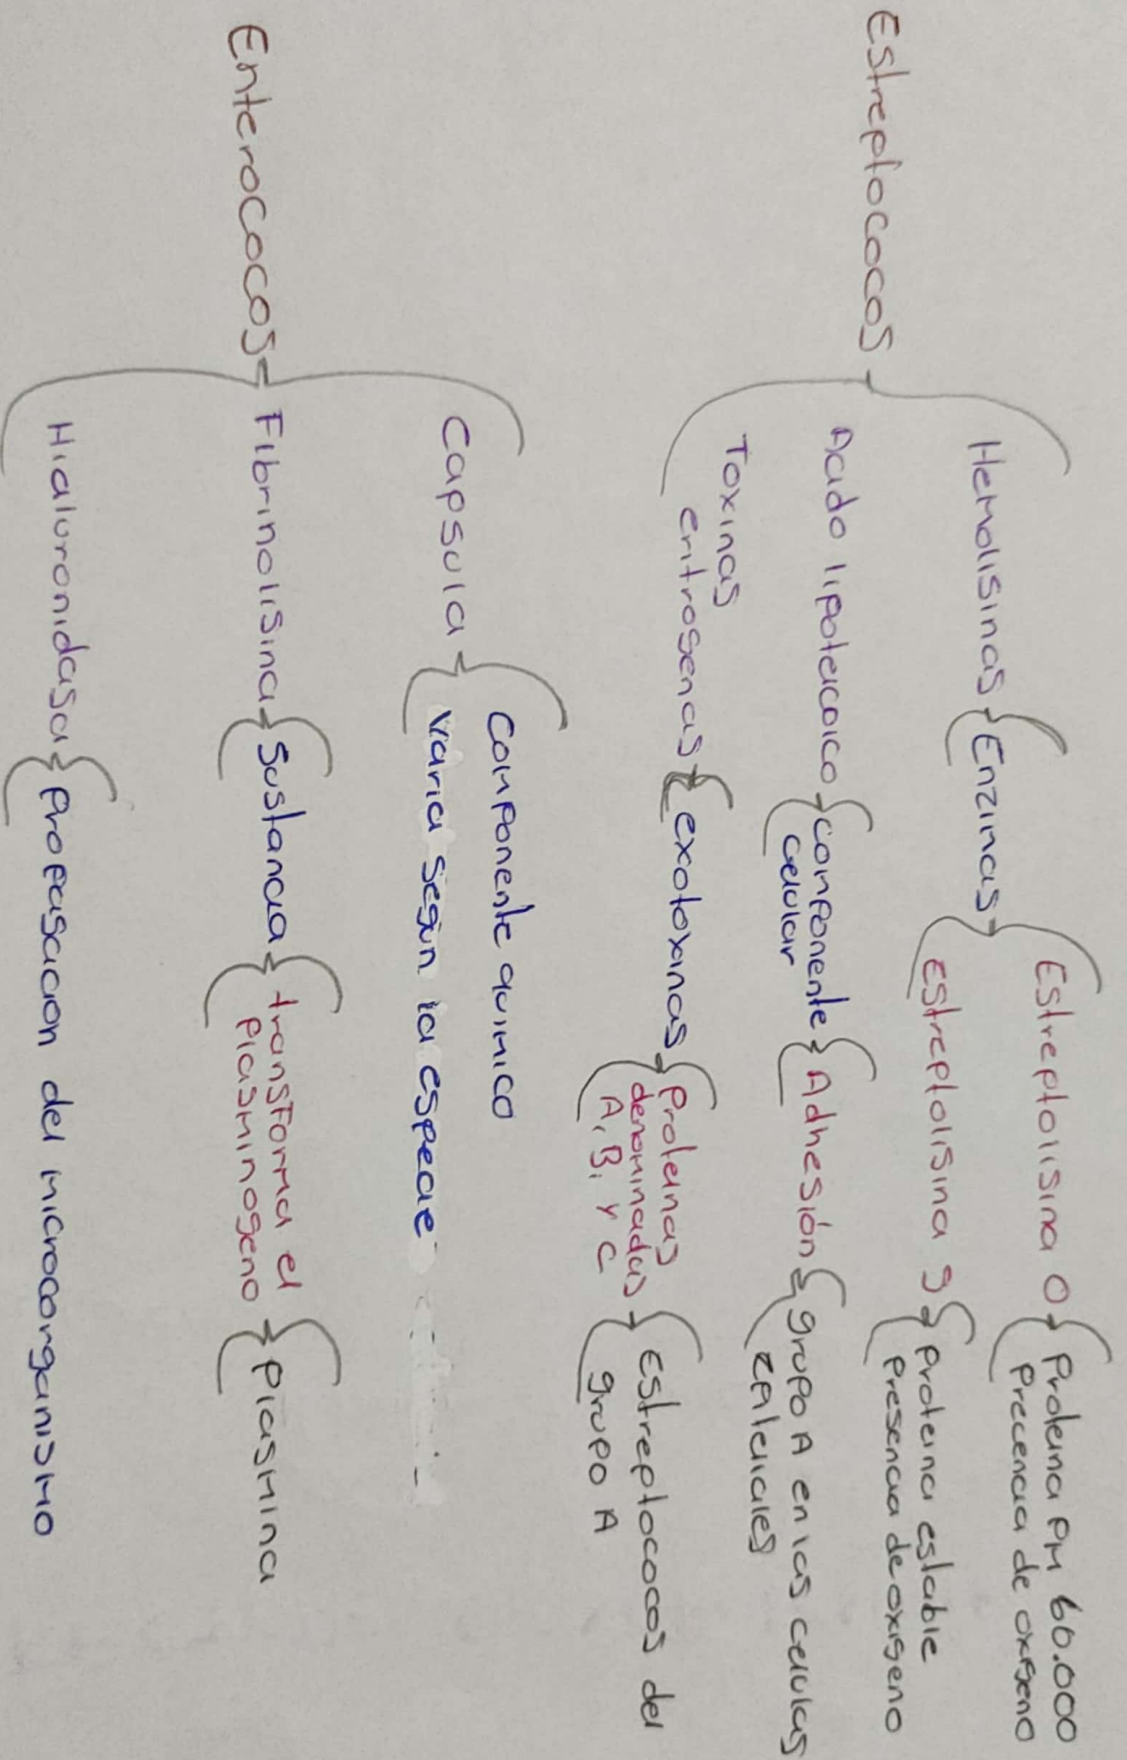 Estreptococos
Hemolisinas
Enzimas
Estreptolisina O
Proteina PM 60.000
Precencia de oxigeno
Estreptolisina S
Proteina estable
Presencia de oxigeno
Acido lipoteicoico
componente
celular
Adhesión
grupo A en las celulas
epiteliales
Toxinas
eritrogenas
exotoxinas
Proteinas
denominadas
A, B, Y C
Estreptococos del
grupo A
Enterococos
Capsula
Componente quimico
Varia segun la especie
Fibrinolisina
Sustancia
transforma el
plasminogeno
Plasmina
Hialuronidasa
Propagacion del microorganismo